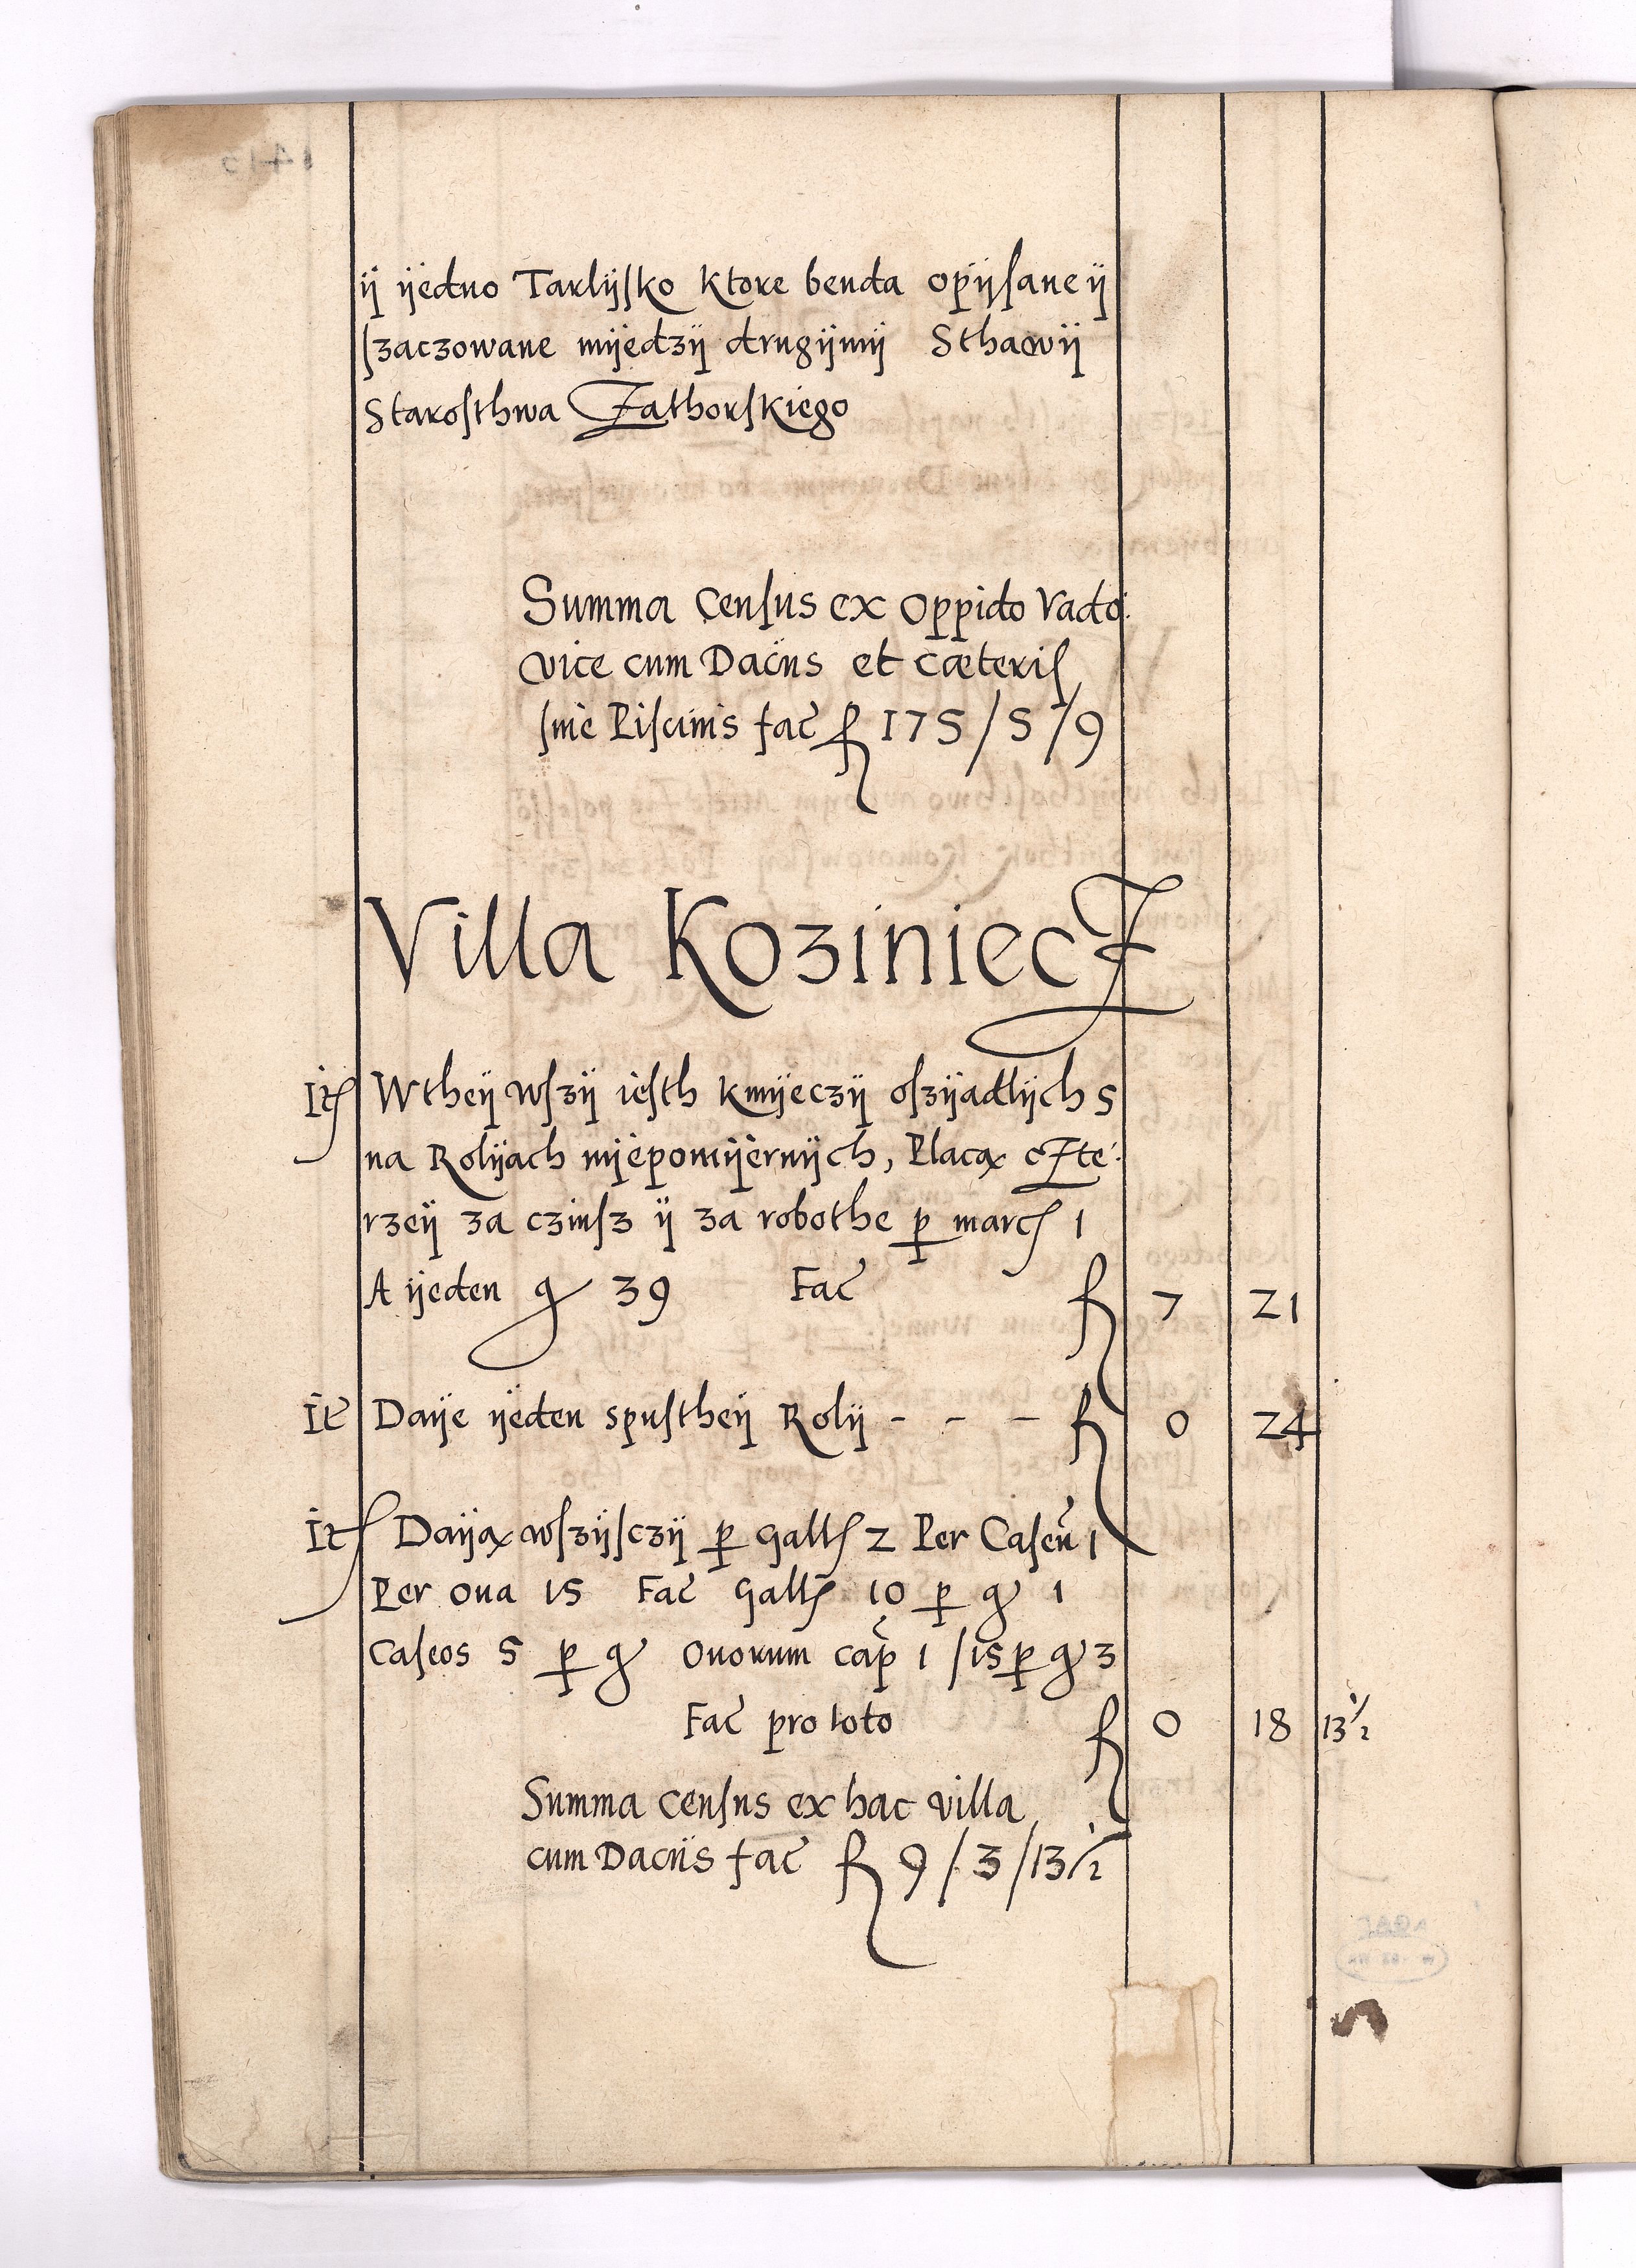 ÿ ÿedno Tarlÿsko ktore benda opÿsane ÿ
szaczowane mÿedzÿ drugÿmÿ Sthawÿ
Starosthwa Zathorskiego
Summa Census ex Oppido Vado:
vice cum Daciis et cæteris
sine Piscinis fac fl 175/5/9
Villa KoziniecZ
It Wtheÿ wszÿ iesth kmÿeczÿ oszÿadlÿch 5
na Rolÿach nÿepomÿernÿch, Placą cZte:
rzeÿ za czinsz ÿ za robothe p marc 1
A ÿeden g 39 Fac fl 7 21
It Daÿe ÿeden spustheÿ Rolÿ - - - fl 0 24
It Daÿą wszÿsczÿ p Gall 2 Per Caseu 1
Per oua 15 Fac Gall 10 p g 1
Caseos 5 p g Ouorum cap 1/15 p g 3
Fac pro toto fl 0 18 13 1/2
Summa census ex hac villa
cum Daciis fac fl 9/3/13 1/2